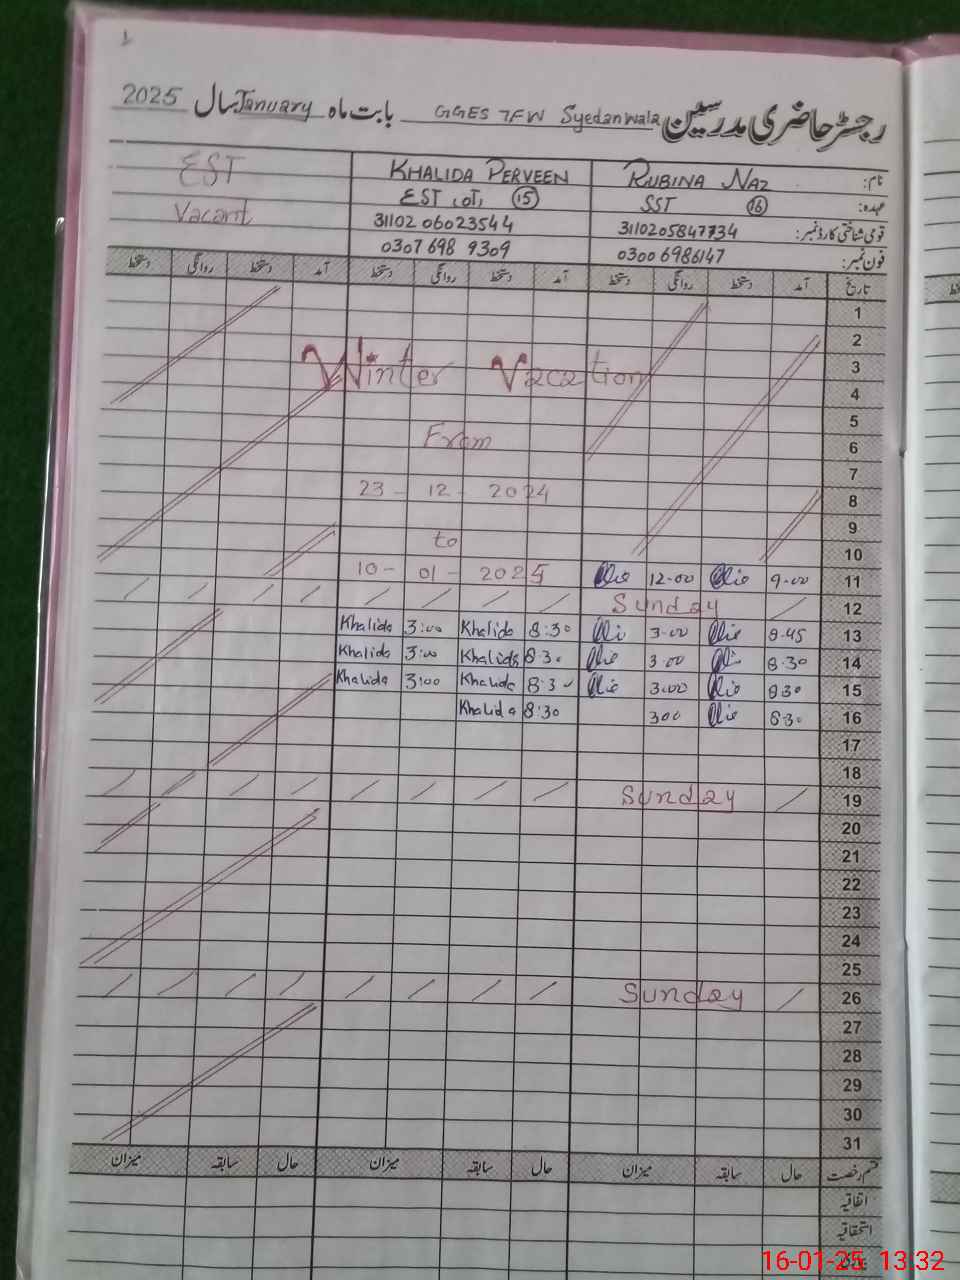 رجسٹر حاضری مدرسین GGES 7FW Syedanwala بابت ماہ January سال 2025
نام: RUBINA NAZ KHALIDA PERVEEN EST
عہدہ: SST 16 EST 15 Vacant
قومی شناختی کارڈ نمبر: 3110205847734 31102 06023544
فون نمبر: 0300 6986147 0307 698 9309
تاریخ آمد دستخط روانگی دستخط آمد دستخط روانگی دستخط آمد دستخط روانگی دستخط
1
2
3
Winter Vacation
4
5
From
6
7
23 - 12 - 2024
8
9
to
10
10 - 01 - 2025
11 9-00 12-00
12 Sunday
13 8-45 3-00 8:30 Khalida 3:00 Khalida
14 8-30 3-00 8:30 Khalida 3:00 Khalida
15 830 3-00 8:30 Khalida 3:00 Khalida
16 8-30 300 8:30 Khalida
17
18
19 Sunday
20
21
22
23
24
25
26 Sunday
27
28
29
30
31
قسم رخصت حال سابقہ میزان حال سابقہ میزان حال سابقہ میزان
اتفاقیہ
استحقاقیہ
16-01-25 13:32